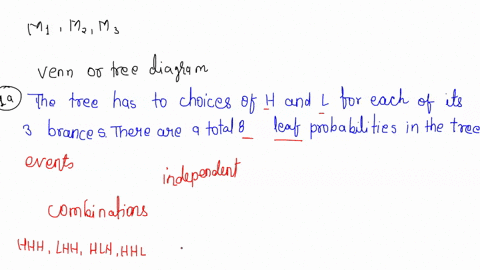 M1, M2, M3
Venn or tree diagram
1a The tree has to choices of H and L for each of its
3 brances. There are a total 8 leaf probabilities in the tree
events
independent
combinations
HHH, LHH, HLH, HHL